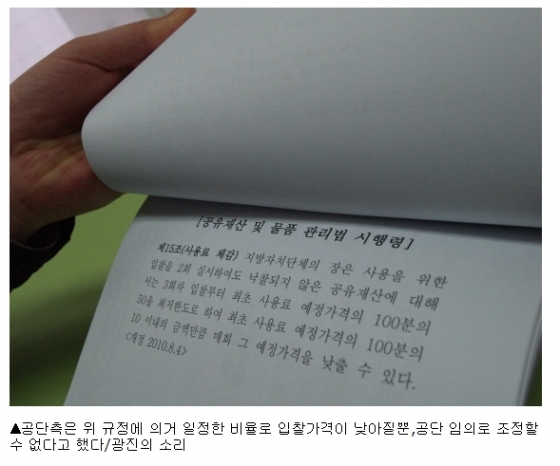 [공유재산 및 물품 관리법 시행령]
제15조(사용료 체감) 지방자치단체의 장은 사용을 위한
입찰을 2회 실시하여도 낙찰되지 않은 공유재산에 대해
서는 3회차 입찰부터 최초 사용료 예정가격의 100분의
50을 최저한도로 하여 최초 사용료 예정가격의 100분의
10 이내의 금액만큼 매회 그 예정가격을 낮출 수 있다.
<개정 2010.8.4>
▲공단측은 위 규정에 의거 일정한 비율로 입찰가격이 낮아질뿐,공단 임의로 조정할
수 없다고 했다/광진의 소리